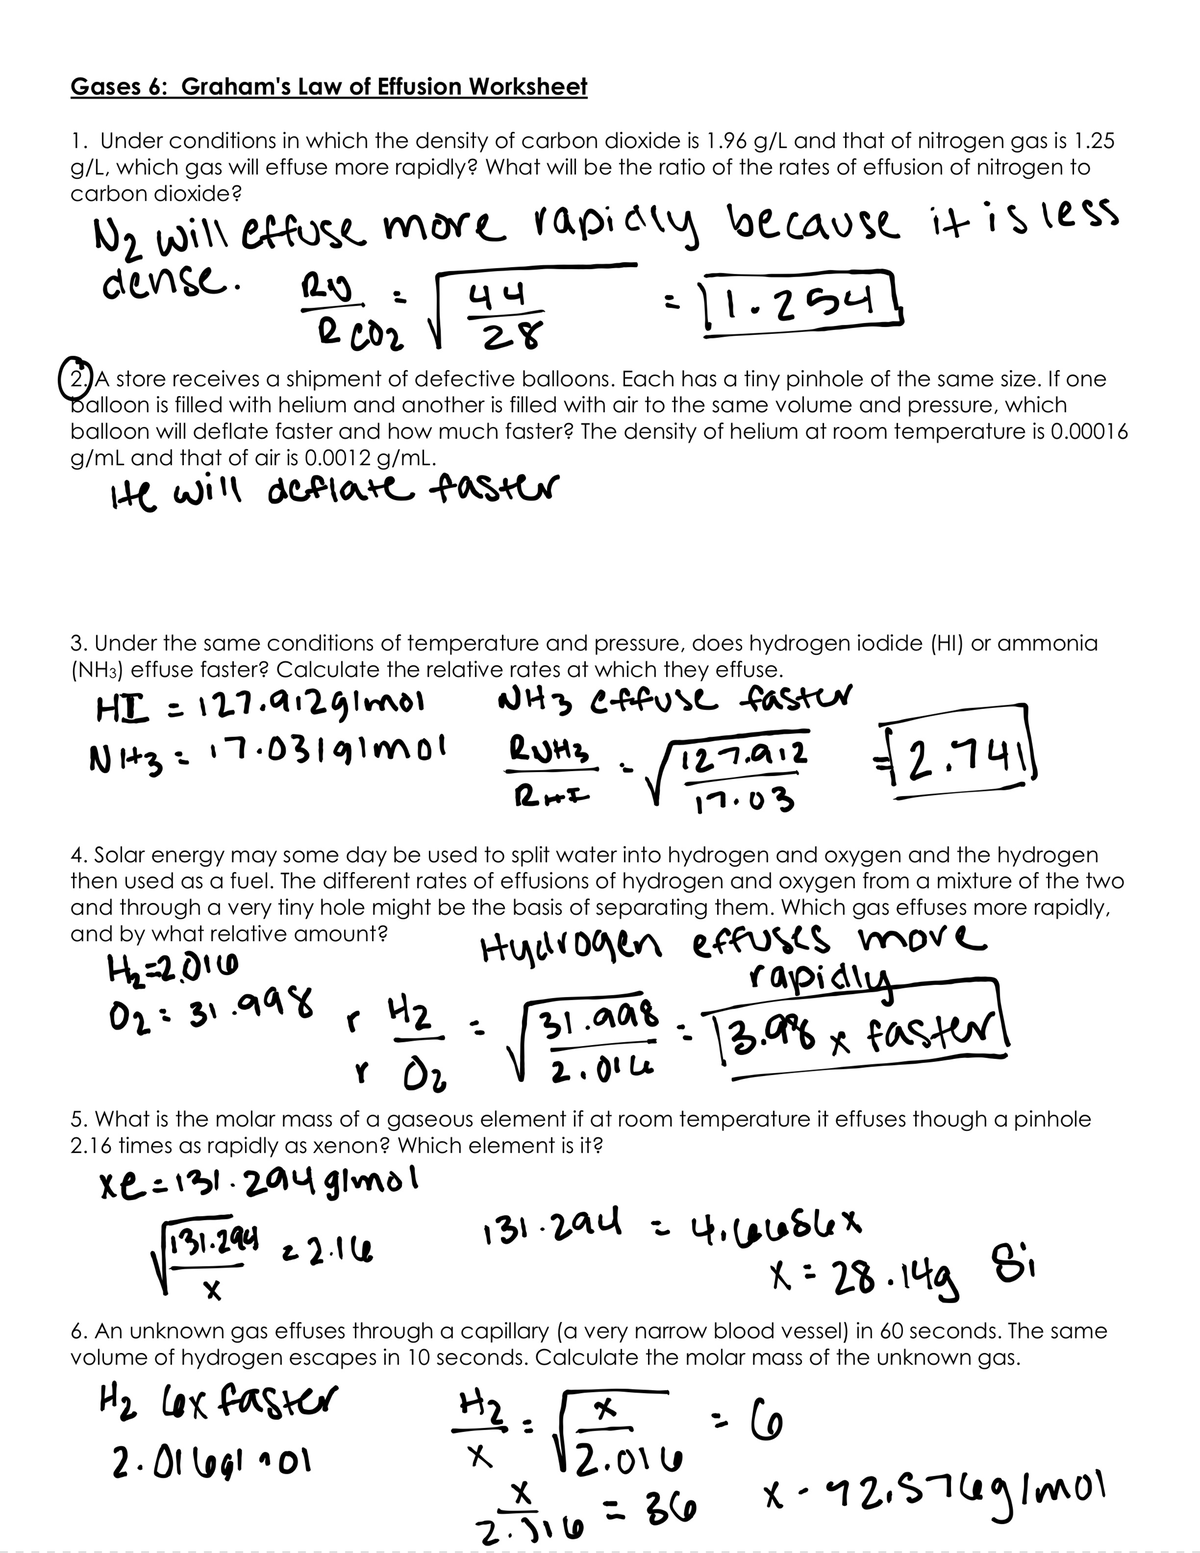 Gases 6: Graham's Law of Effusion Worksheet
1. Under conditions in which the density of carbon dioxide is 1.96 g/L and that of nitrogen gas is 1.25
g/L, which gas will effuse more rapidly? What will be the ratio of the rates of effusion of nitrogen to
carbon dioxide?
N2 will effuse more rapidly because it is less
dense.
RN / R CO2 = √ 44 / 28 = 1.254
2. A store receives a shipment of defective balloons. Each has a tiny pinhole of the same size. If one
balloon is filled with helium and another is filled with air to the same volume and pressure, which
balloon will deflate faster and how much faster? The density of helium at room temperature is 0.00016
g/mL and that of air is 0.0012 g/mL.
He will deflate faster
3. Under the same conditions of temperature and pressure, does hydrogen iodide (HI) or ammonia
(NH3) effuse faster? Calculate the relative rates at which they effuse.
HI = 127.912g/mol NH3 effuse faster
NH3 = 17.031g/mol RNH3 / RHI = √ 127.912 / 17.03 = 2.741
4. Solar energy may some day be used to split water into hydrogen and oxygen and the hydrogen
then used as a fuel. The different rates of effusions of hydrogen and oxygen from a mixture of the two
and through a very tiny hole might be the basis of separating them. Which gas effuses more rapidly,
and by what relative amount?
Hydrogen effuses more
rapidly
H2=2.016
O2 = 31.998
r H2 / r O2 = √ 31.998 / 2.016 = 3.98 x faster
5. What is the molar mass of a gaseous element if at room temperature it effuses though a pinhole
2.16 times as rapidly as xenon? Which element is it?
xe = 131.294 g/mol
√ 131.294 / x = 2.16
131.294 = 4.6656x
x = 28.14g Si
6. An unknown gas effuses through a capillary (a very narrow blood vessel) in 60 seconds. The same
volume of hydrogen escapes in 10 seconds. Calculate the molar mass of the unknown gas.
H2 6x faster
H2 / x = √ x / 2.016 = 6
2.016g/mol
x / 2.016 = 36
x = 72.576g/mol